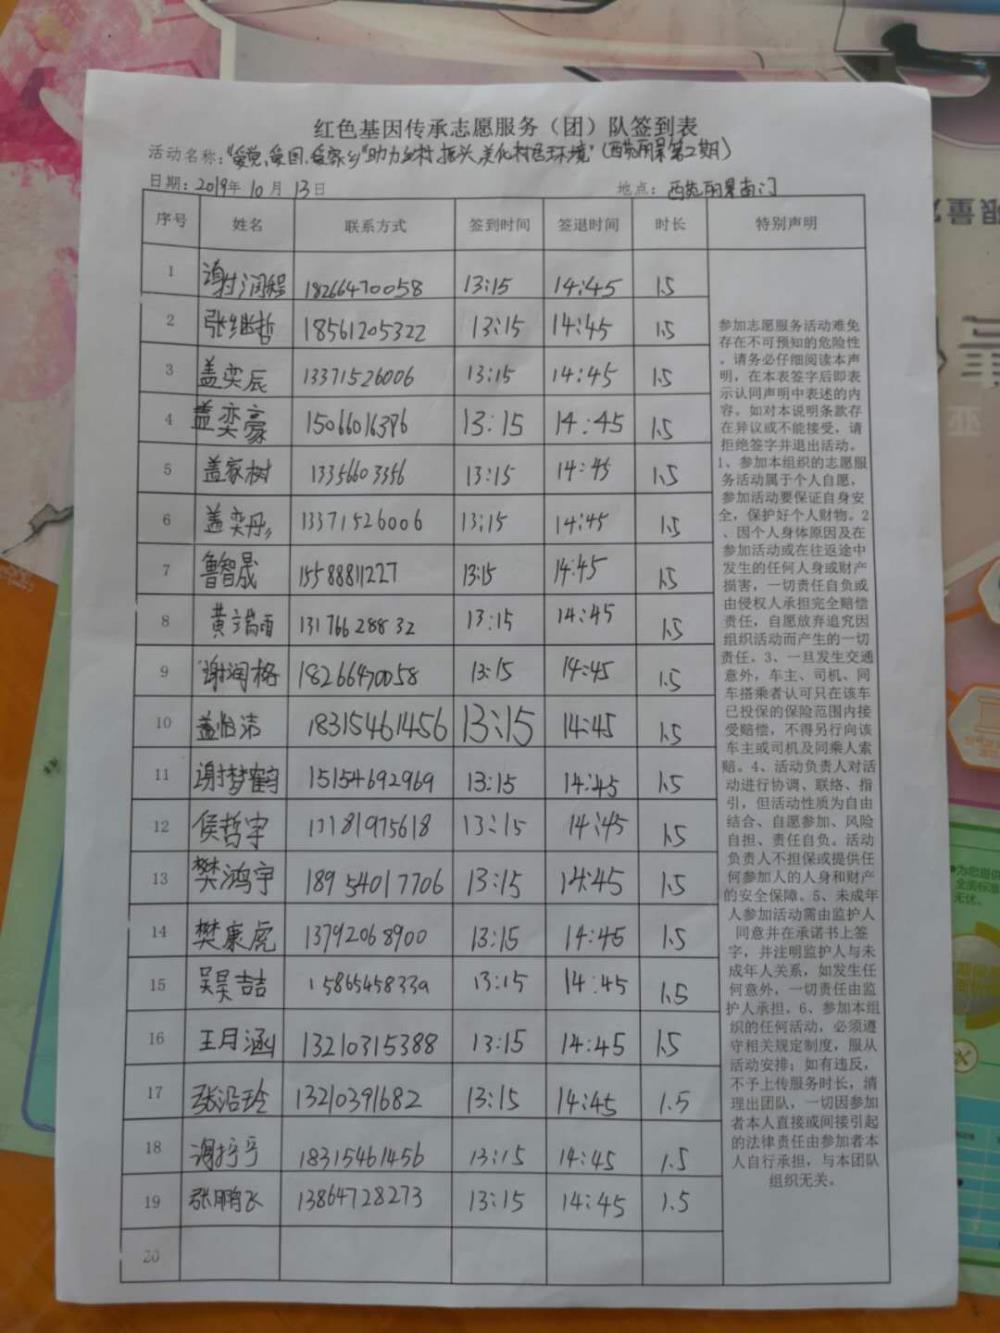 红色基因传承志愿服务（团）队签到表
活动名称："爱党、爱国、爱家乡"助力乡村振兴,美化村居环境"(西苑丽景第二期)
日期：2019年10月13日 地点：西苑丽景南门
序号 姓名 联系方式 签到时间 签退时间 时长 特别声明
1 谢润程 18266470058 13:15 14:45 1.5
2 张继哲 18561205322 13:15 14:45 1.5
3 盖奕辰 13371526006 13:15 14:45 1.5
4 盖奕豪 15066016376 13:15 14:45 1.5
5 盖家树 13356603356 13:15 14:45 1.5
6 盖奕彤 13371526006 13:15 14:45 1.5
7 鲁智晟 15588811227 13:15 14:45 1.5
8 黄 13176628832 13:15 14:45 1.5
9 谢润格 18266470058 13:15 14:45 1.5
10 盖怡洁 18315461456 13:15 14:45 1.5
11 谢梦鹤 15154692969 13:15 14:45 1.5
12 侯哲宇 13181975618 13:15 14:45 1.5
13 樊鸿宇 18954017706 13:15 14:45 1.5
14 樊康虎 13792068900 13:15 14:45 1.5
15 吴昊喆 15865458339 13:15 14:45 1.5
16 王月涵 13210315388 13:15 14:45 1.5
17 张沿玲 13210391682 13:15 14:45 1.5
18 谢 18315461456 13:15 14:45 1.5
19 张鹏飞 13864728273 13:15 14:45 1.5
20
参加志愿服务活动难免
存在不可预知的危险性
。请务必仔细阅读本声
明，在本表签字后即表
示认同声明中表述的内
容。如对本说明条款存
在异议或不能接受，请
拒绝签字并退出活动。
1、参加本组织的志愿服
务活动属于个人自愿，
参加活动要保证自身安
全，保护好个人财物。2
、因个人身体原因及在
参加活动或在往返途中
发生的任何人身或财产
损害，一切责任自负或
由侵权人承担完全赔偿
责任，自愿放弃追究因
组织活动而产生的一切
责任。3、一旦发生交通
意外，车主、司机、同
车搭乘者认可只在该车
已投保的保险范围内接
受赔偿，不得另行向该
车主或司机及同乘人索
赔。4、活动负责人对活
动进行协调、联络、指
引，但活动性质为自由
结合、自愿参加、风险
自担、责任自负。活动
负责人不担保或提供任
何参加人的人身和财产
的安全保障。5、未成年
人参加活动需由监护人
同意并在承诺书上签
字，并注明监护人与未
成年人关系，如发生任
何意外，一切责任由监
护人承担。6、参加本组
织的任何活动，必须遵
守相关规定制度，服从
活动安排；如有违反，
不予上传服务时长，清
理出团队，一切因参加
者本人直接或间接引起
的法律责任由参加者本
人自行承担，与本团队
组织无关。
限量
为您提供
全面标准
无忧。